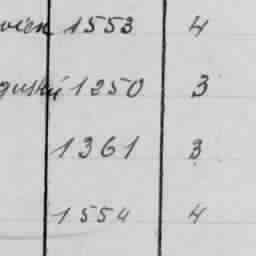 1553 4
1250 3
1361 3
1554 4